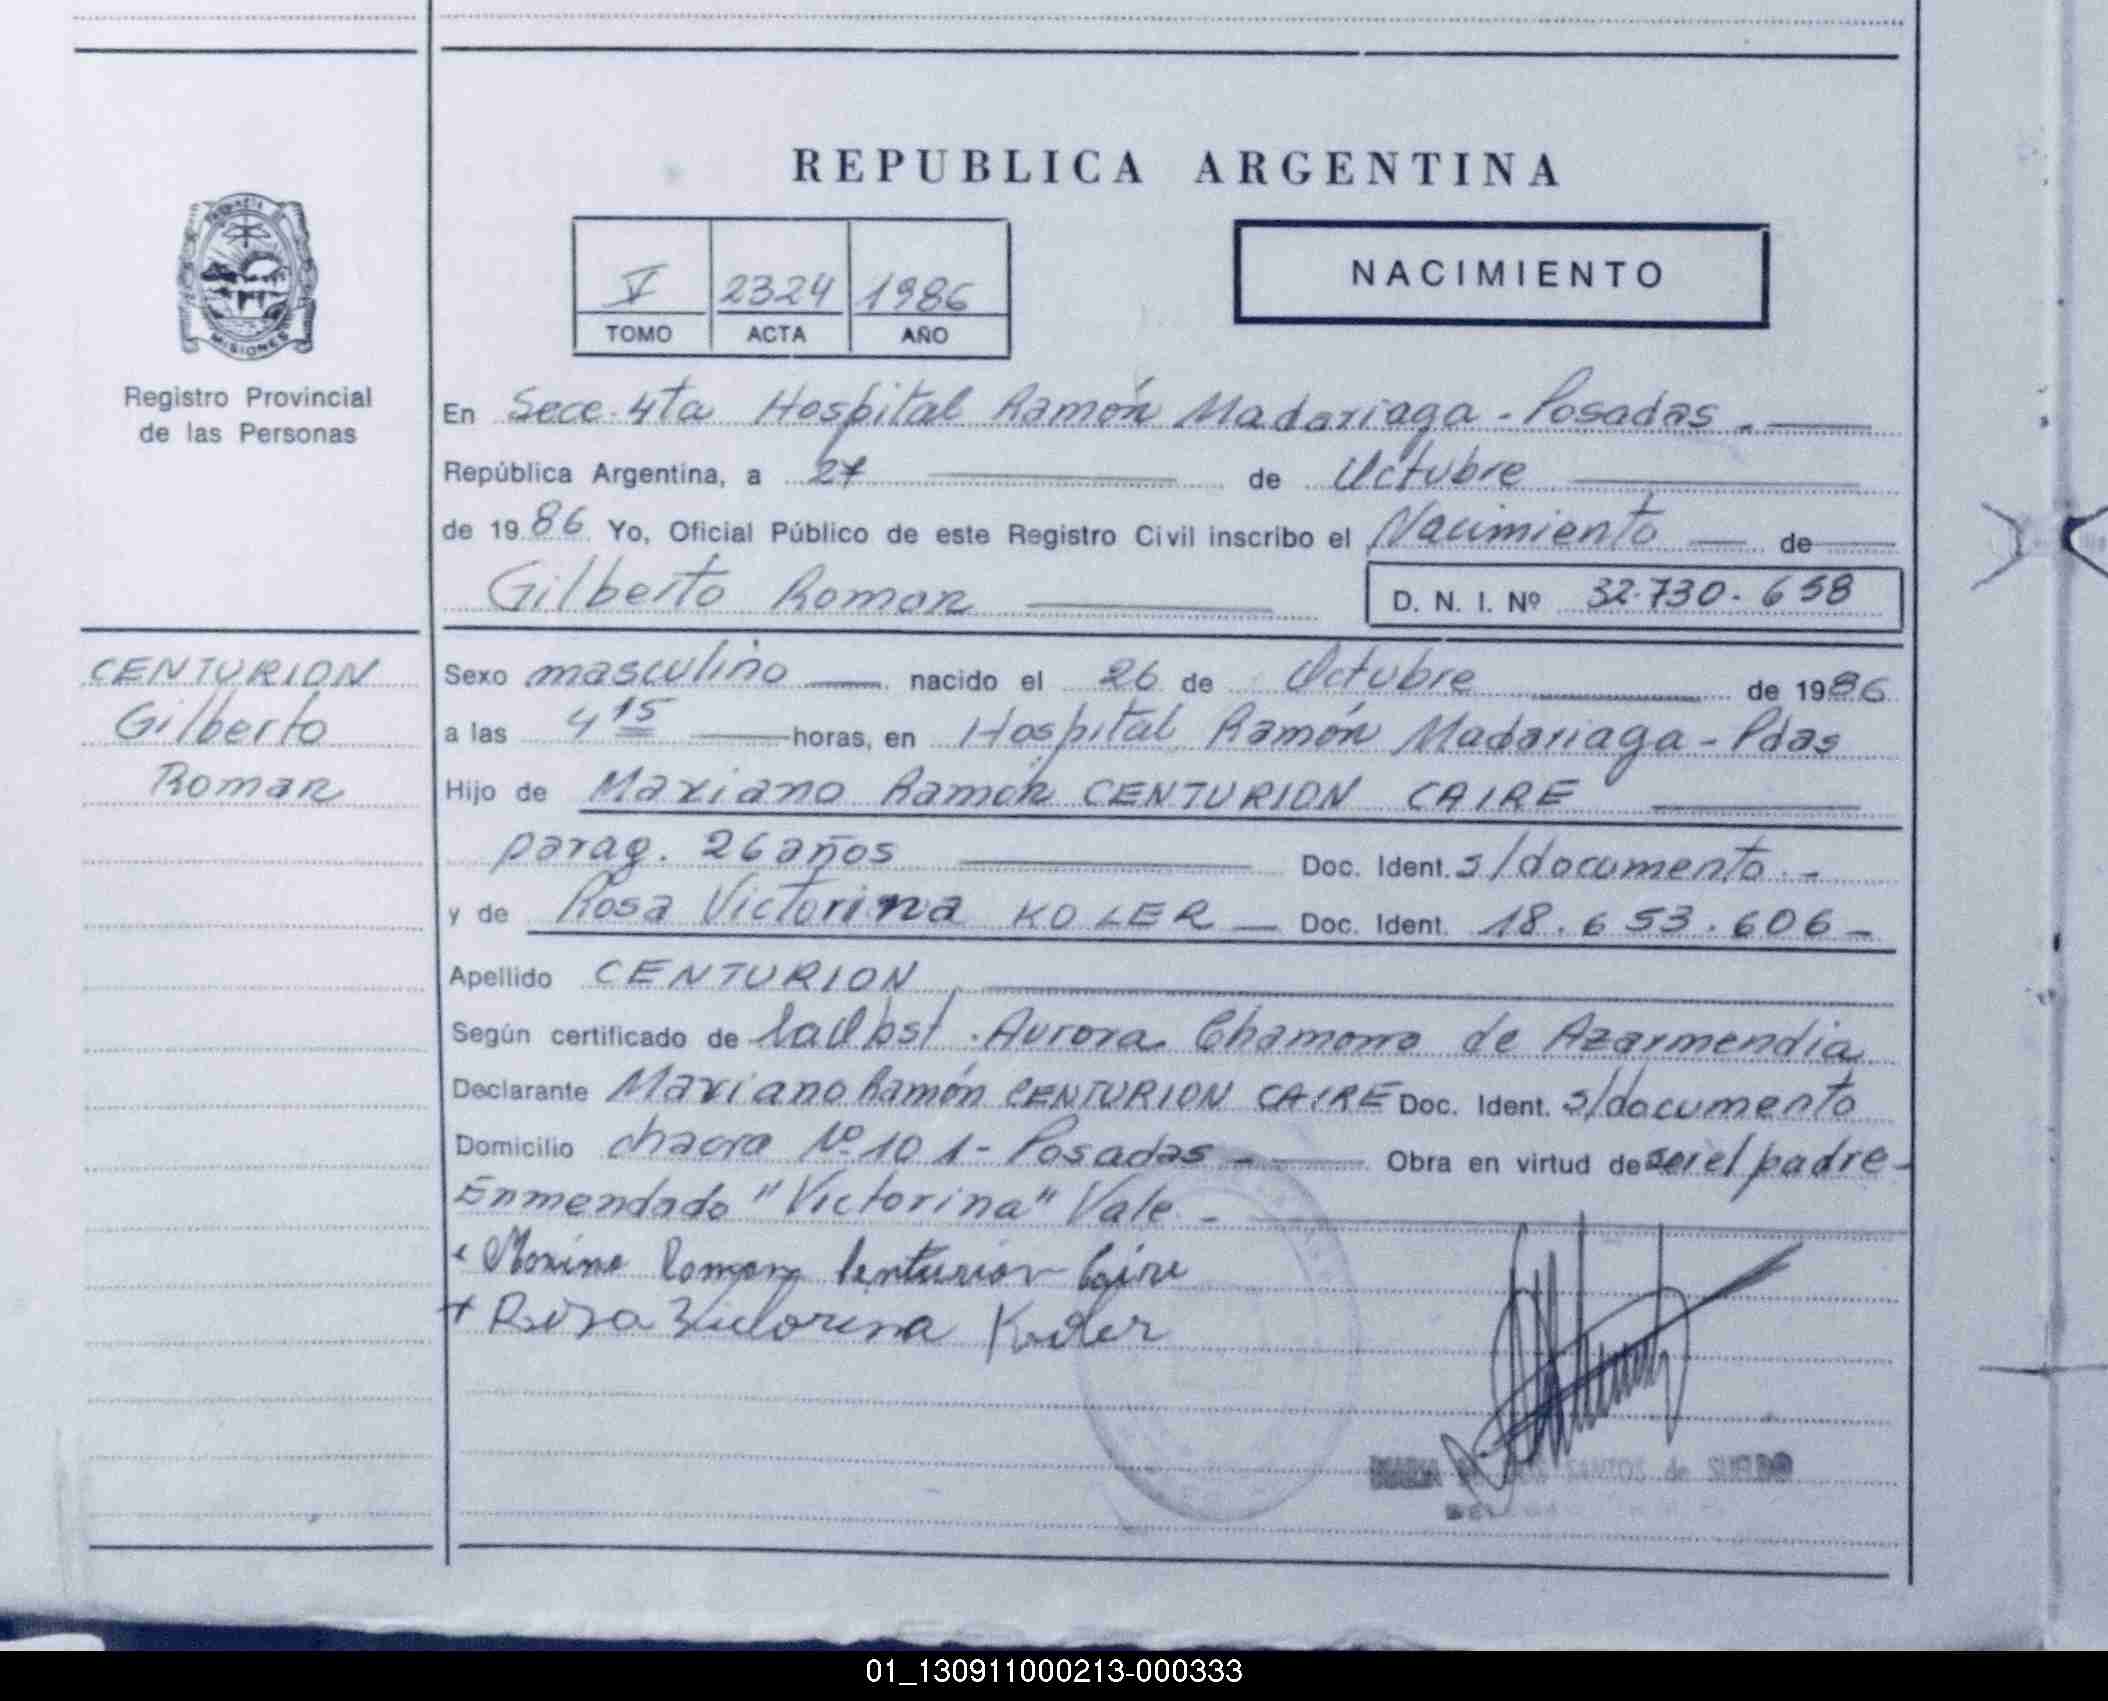 REPUBLICA ARGENTINA
PROVINCIA DE
MISIONES
Registro Provincial
de las Personas
V 2324 1986
TOMO ACTA AÑO
NACIMIENTO
En Secc. 4ta Hospital Ramón Madariaga - Posadas.
República Argentina, a 27 de Octubre
de 1986 Yo, Oficial Público de este Registro Civil inscribo el Nacimiento de
Gilberto Roman
D. N. I. Nº 32.730.658
CENTURION
Gilberto
Roman
Sexo masculino nacido el 26 de Octubre de 1986
a las 4 15 horas, en Hospital Ramón Madariaga - Pdas
Hijo de Mariano Ramón CENTURION CAIRE
parag. 26 años Doc. Ident. s/documento.-
y de Rosa Victorina KOLER Doc. Ident. 18.653.606-
Apellido CENTURION
Según certificado de la Obst. Aurora Chamorro de Azarmendia
Declarante Mariano Ramón CENTURION CAIRE Doc. Ident. s/documento
Domicilio chacra Nº 101 - Posadas - Obra en virtud de ser el padre-
Enmendado "Victorina" Vale.-
Centurion Caire
+ Rosa Victorina Koler
SANTOS de SUELDO
01_130911000213-000333